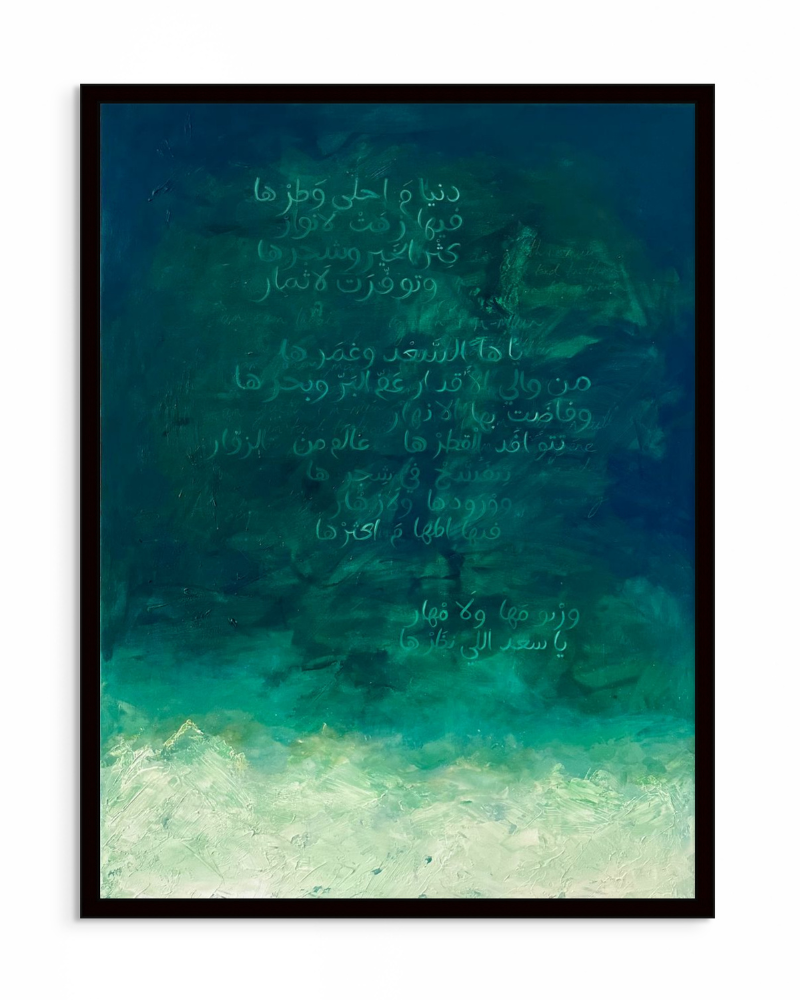 دنيا مَ احلى وَطرْها
فيها زهَتْ لانوار
كِثْر الخَير وشجرها
وتوفّرَت لَاثمار
ياها السَّعْد وغمَرها
من والي الأقدار عَمّ البَرّ وبحرها
وفاضَت بها الانهار
تتوافَد القطرْها عالَم من الزوّار
في شجرها
وورودها ولازهار
فيها المها مَ اكثرْها
ولَا مْهار
يا سعد اللي